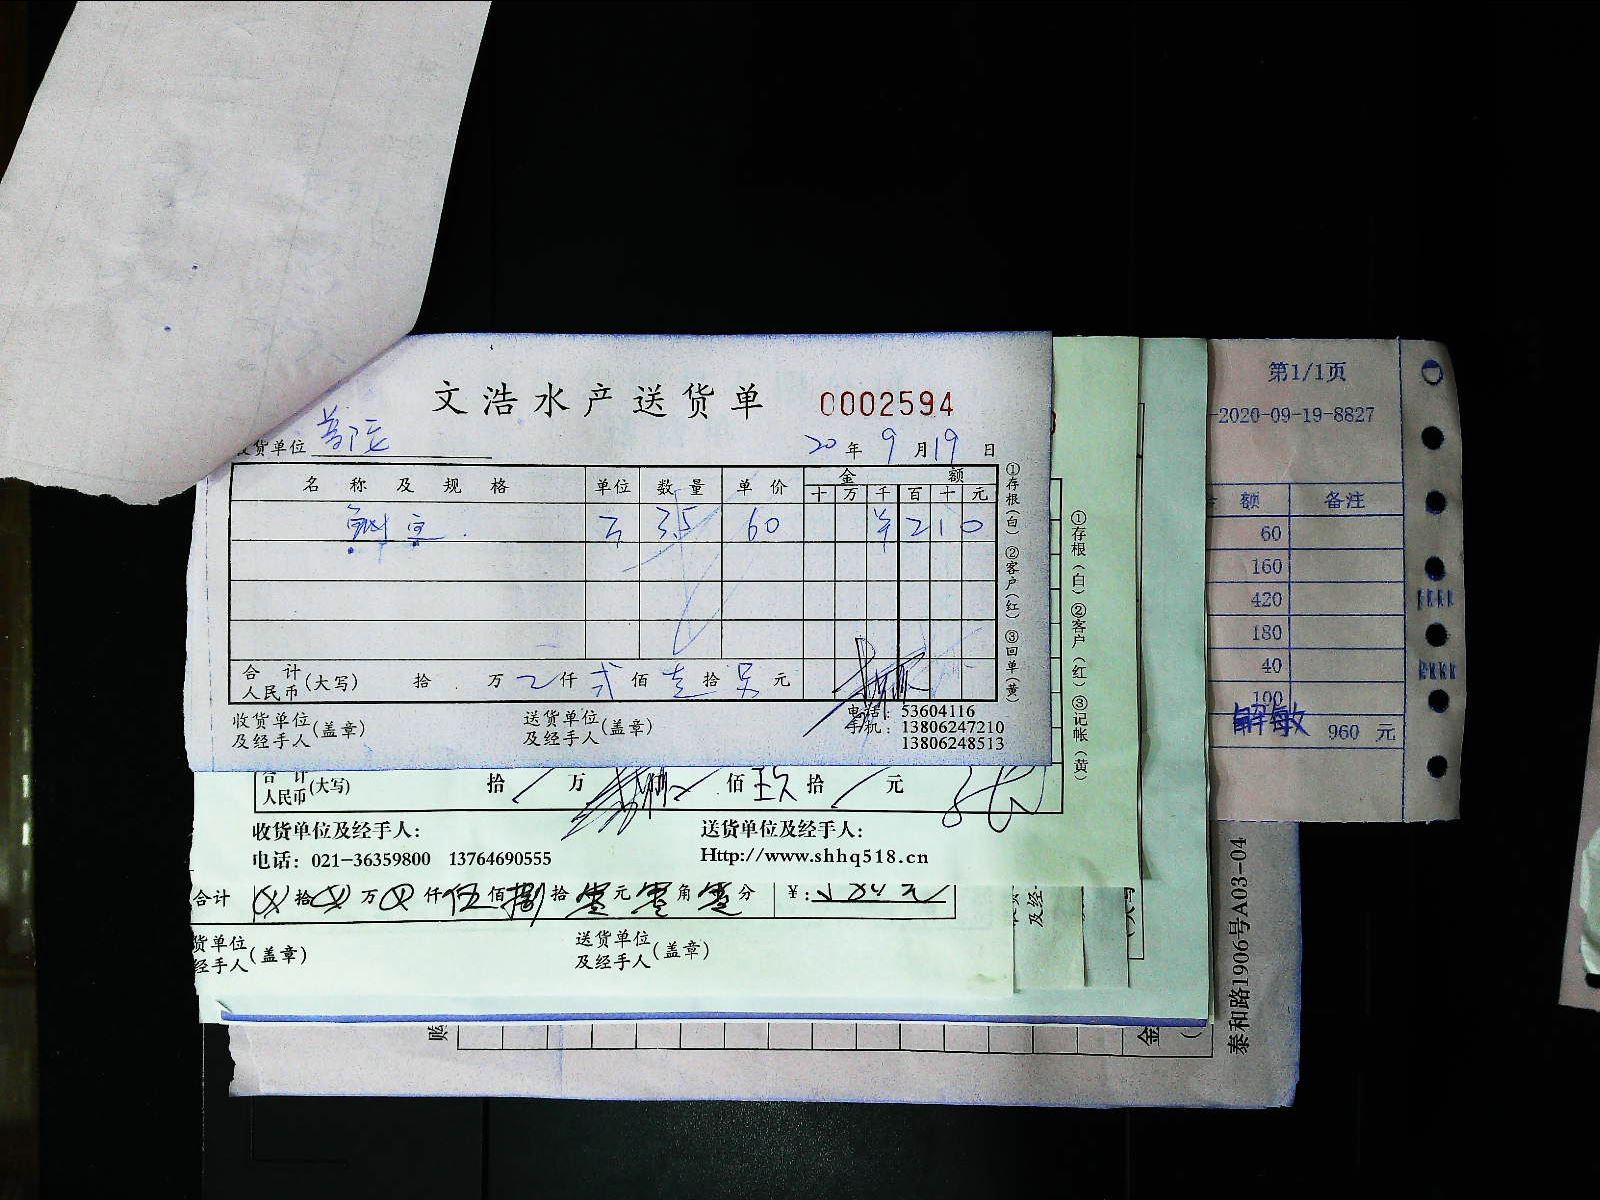 文浩水产送货单 0002594
货单位
20年9月19日
名称及规格 单位 数量 单价 金额
十万千百十元
3.5 60 ¥210
①存根(白) ②客户(红) ③回单(黄)
合计
人民币(大写) 拾 万 仟 弍佰 壹拾 元
收货单位
及经手人(盖章)
送货单位
及经手人(盖章)
电话: 53604116
手机: 13806247210
13806248513
①存根(白) ②客户(红) ③记帐(黄)
合计
人民币(大写) 拾 万 佰 玖拾 元
收货单位及经手人: 送货单位及经手人:
电话: 021-36359800 13764690555 Http://www.shhq518.cn
合计 拾 万 仟 伍佰 捌拾 零元 零角 零分 ¥:
货单位
经手人(盖章)
送货单位
及经手人(盖章)
及经
第1/1页
-2020-09-19-8827
额 备注
60
160
420
180
40
100
解敏
960 元
泰和路1906号A03-04
金